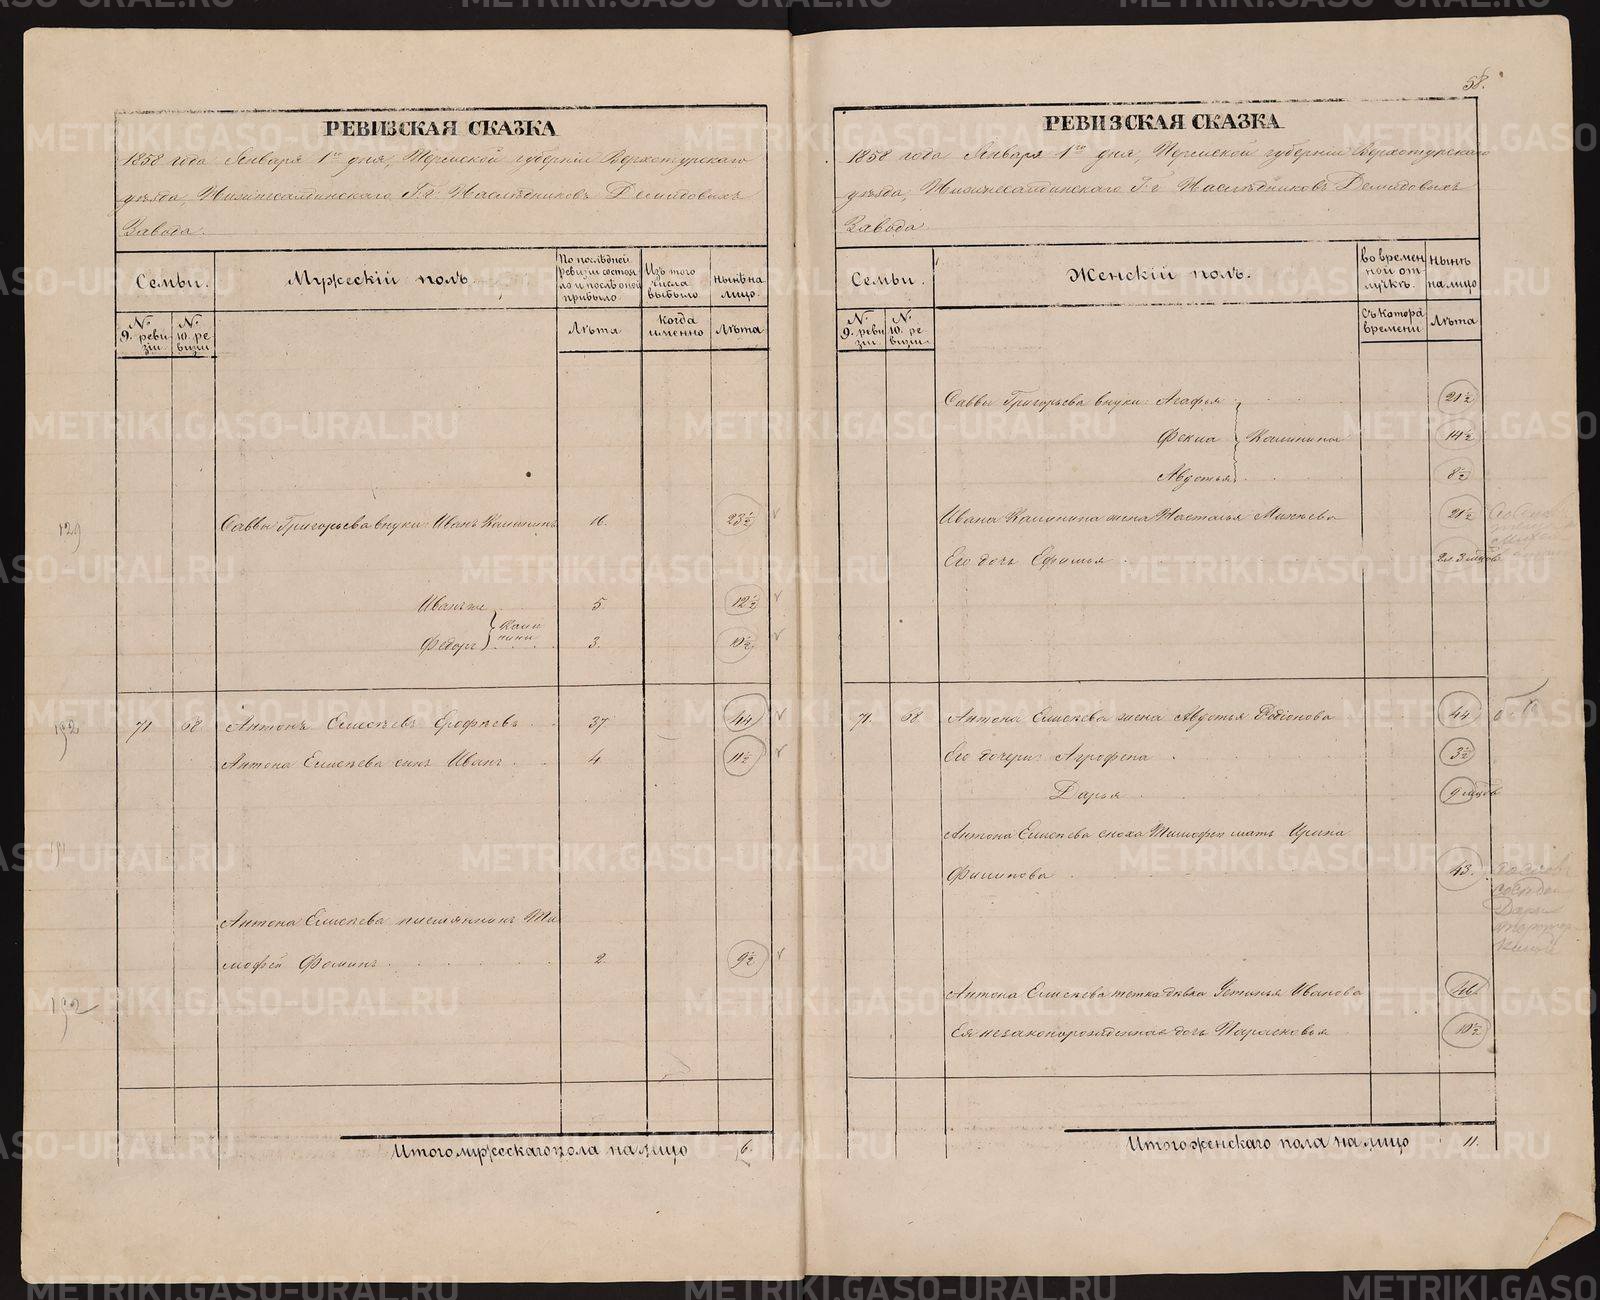 58.
РЕВИЗСКАЯ СКАЗКА
1858 года Января 1го дня, Пермской губернiи Верхотурскаго
уѣзда, Нижнесалдинскаго Г.г. Наслѣдниковъ Демидовыхъ
Завода.
Семьи.
Мужескiй полъ.
По послѣдней ревизiи состояло и послѣ оной прибыло
Изъ того числа выбыло
Нынѣ на лицо.
№ 9. ревизiи
№ 10. ревизiи
Лѣта
Когда именно
Лѣта
129 Саввы Григорьева внуки: Иванъ Калининъ 16. 23½
Иванъ же 5. 12½
Калинины
Федоръ 3. 10½
192 71 68. Антонъ Елисѣевъ Ерофѣевъ 37 44
Антона Елисѣева сынъ Иванъ 4 11½
191
Антона Елисѣева племянникъ Ти
мофей Фоминъ 2. 9½
192
Итого мужескаго пола на лицо 6.
РЕВИЗСКАЯ СКАЗКА
1858 года Января 1го дня, Пермской губернiи Верхотурскаго
уѣзда, Нижнесалдинскаго Г.г. Наслѣдниковъ Демидовыхъ
Завода
Семьи.
Женскiй полъ.
Во временной отлучкѣ.
Нынѣ на лицо
№ 9. ревизiи
№ 10. ревизiи.
Съ котора времени
Лѣта
Саввы Григорьева внуки: Агафья 21½
Фекла Калинины 14½
Авдотья 8½
Ивана Калинина жена Настасья Михѣева 21½
Его дочь Ефимья 2 л. 3 мѣсяцовъ
71. 68 Антона Елисѣева жена Авдотья Родiонова 44
Его дочери: Агрофена 3½
Дарья 9 мѣсяцовъ
Антона Елисѣева сноха Тимофея мать Ирина
Филипова 43.
Антона Елисѣева тетка дѣвка Устинья Иванова
Ея незаконорожденная дочь Парасковья 10½
Итого женскаго пола на лицо 11.
METRIKI.GASO-URAL.RU